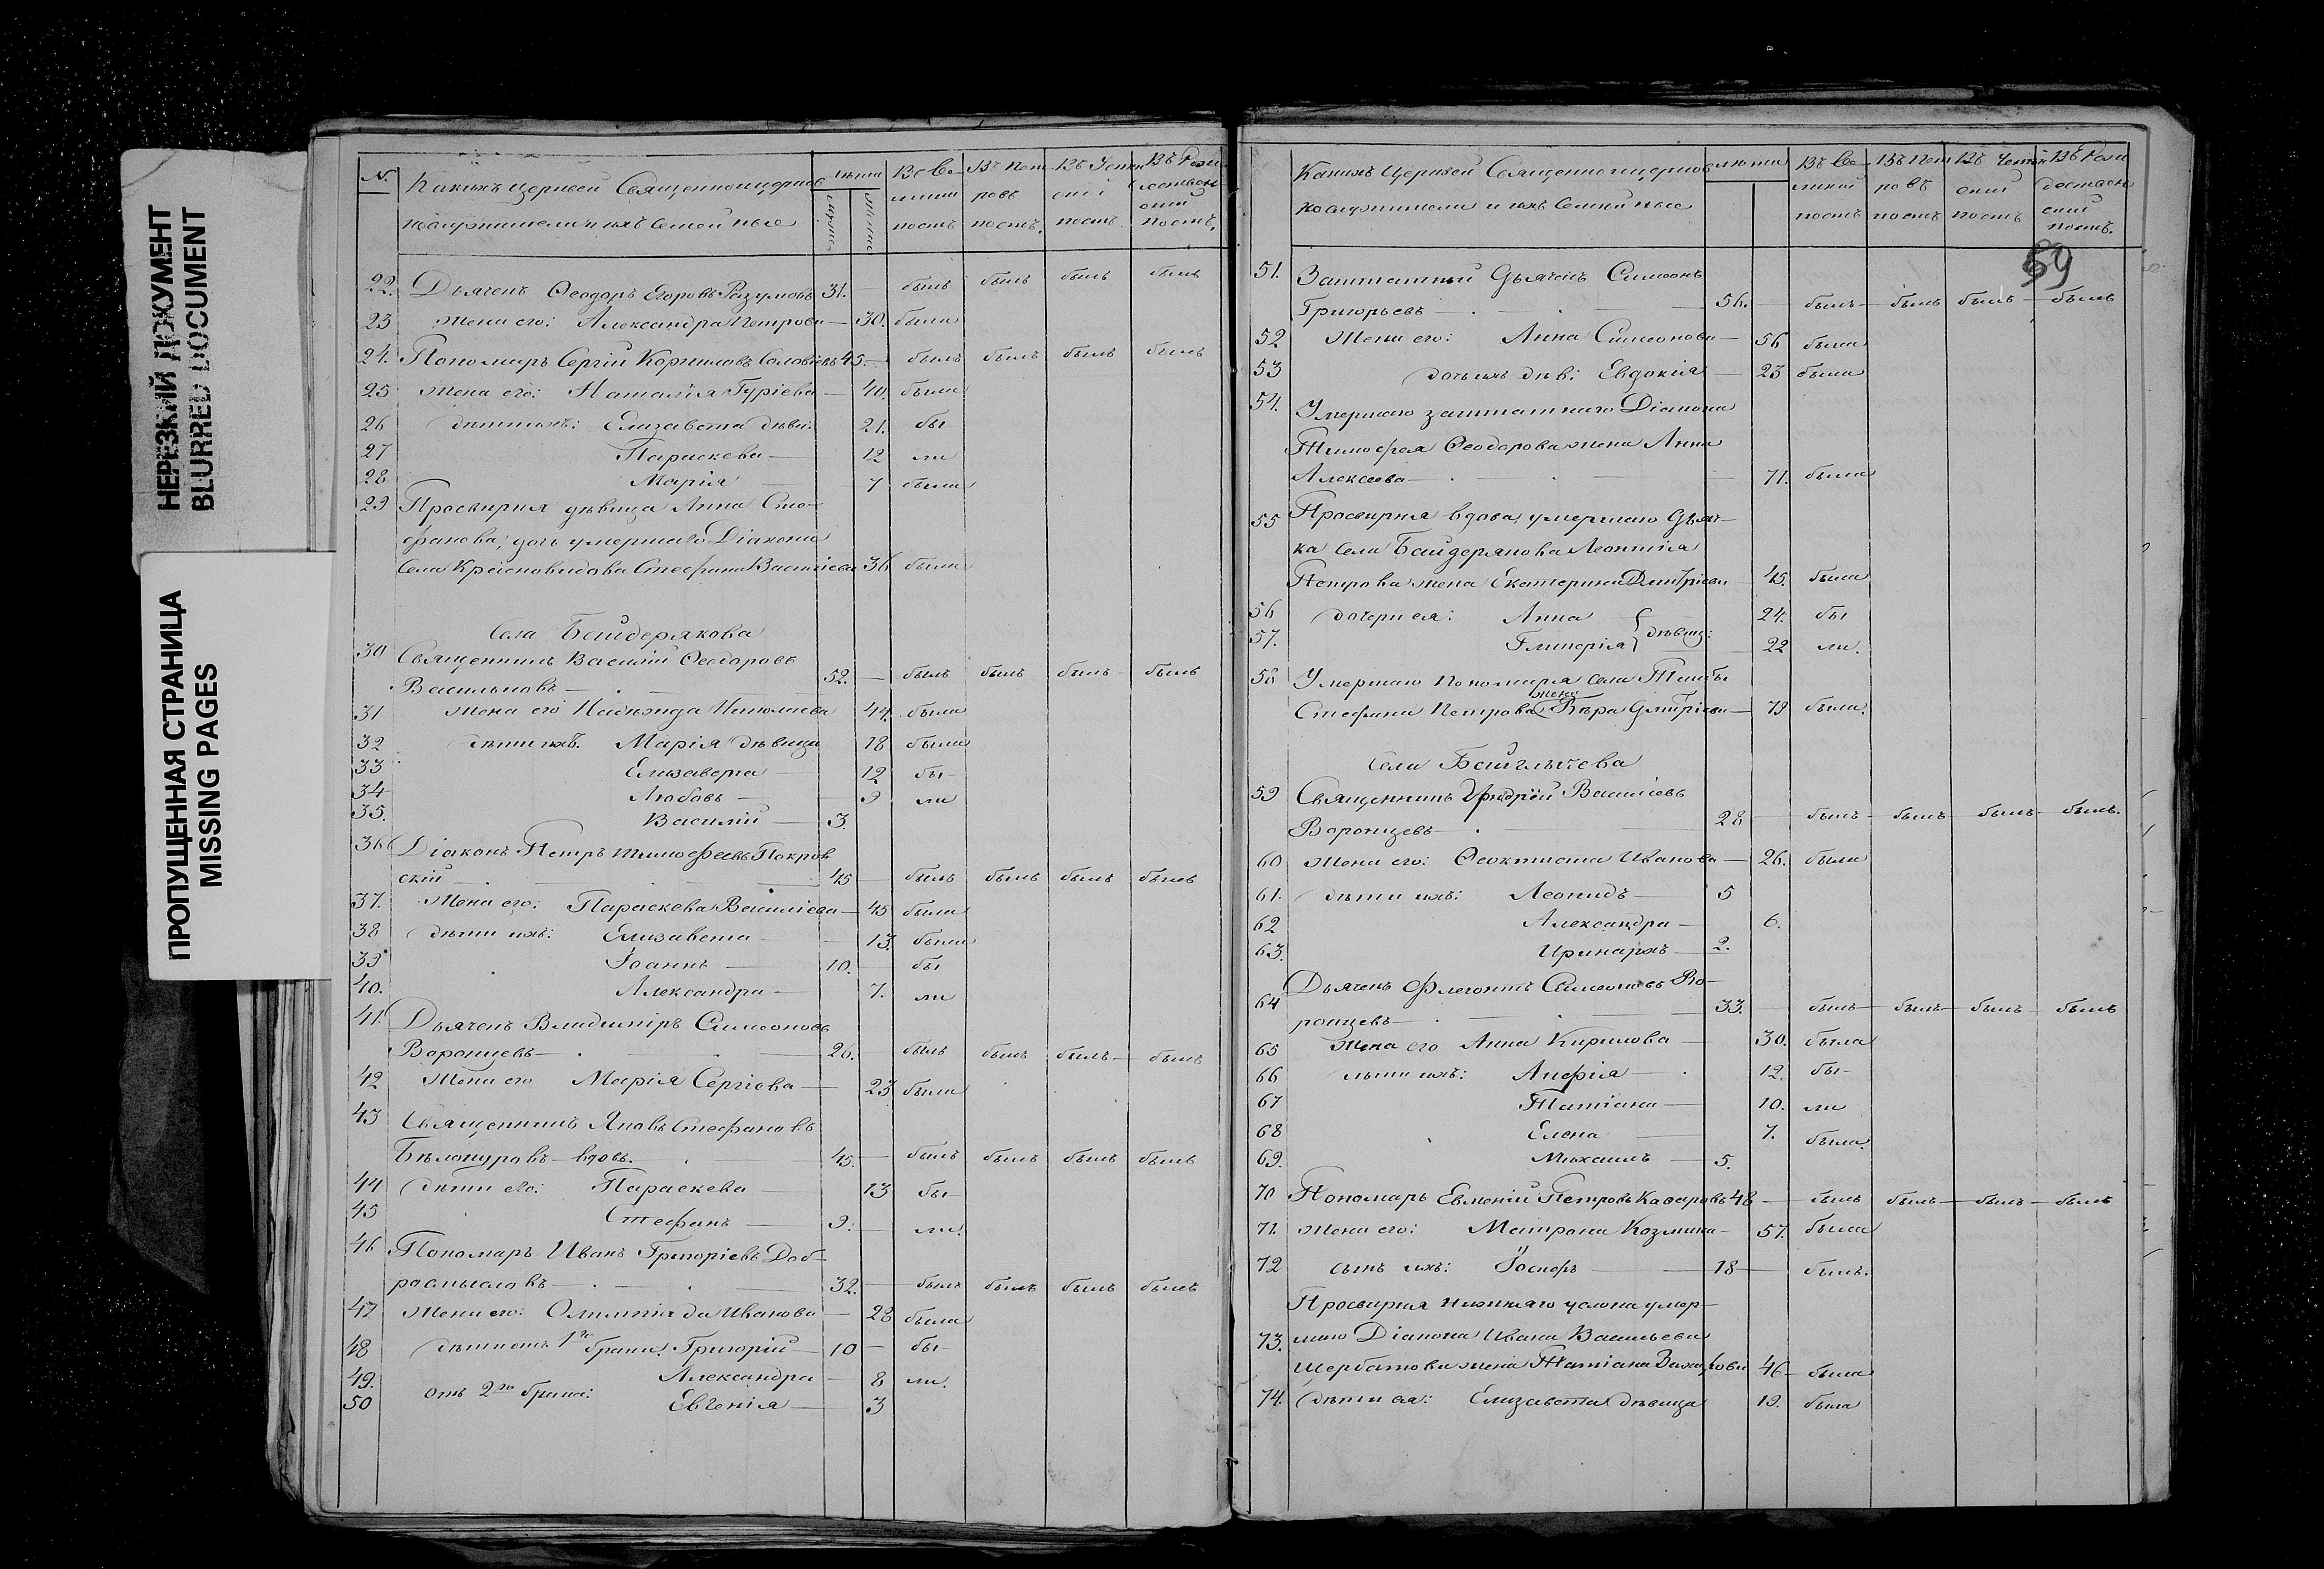 НЕРЕЗКИЙ ДОКУМЕНТ
BLURRED DOCUMENT
ПРОПУЩЕННАЯ СТРАНИЦА
MISSING PAGES
№ Какихъ церквей Священноцерков лѣта Въ Ве Въ Пет Въ Успен Въ Рож
нослужители и ихъ семейные ликій ровъ скій дественскій
постъ постъ. постъ постъ.
22. Дьячекъ Ѳеодоръ Егоровъ Разумовъ 31. — былъ былъ былъ былъ
23 Жена его: Александра Петрова — 30. была
24. Пономарь Сергій Корниловъ Соловьевъ 45. — былъ былъ былъ былъ
25 Жена его: Наталія Гуріева — 40. была
26 дѣти ихъ: Елизавета дѣви. 21. бы
27 Параскева — 12 ли
28 Марія — 7 была
29 Просвирня дѣвица Анна Сте-
фанова, дочь умершаго Діакона
села Красновидова Стефана Василіева 36 была
Села Байдерякова
30 Священникъ Василій Ѳеодоровъ
Васильковъ — 52. — былъ былъ былъ былъ
31 Жена его Надежда Николаева 44. была
32 дѣти ихъ. Марія дѣвица 18 была
33 Елизавета — 12 бы-
34 Любовь — 9 ли
35. Василій — 3.
36 Діаконъ Петръ Тимофеевъ Покров
скій — 45 — былъ былъ былъ былъ
37. Жена его: Параскева Василіева — 45 была
38 дѣти ихъ: Елизавета — 13. была
39 Іоаннъ — 10. бы
40. Александра — 7. ли
41. Дьячекъ Владиміръ Симеоновъ
Воронцевъ — 26. — былъ былъ былъ — былъ
42 Жена его Марія Сергіева — 23 была
43 Священникъ Яковъ Стефановъ
Бѣлокуровъ — вдовъ. 45. — былъ былъ былъ былъ
44 дѣти его: Параскева — 13 бы-
45 Стефанъ — 9. ли.
46 Пономарь Иванъ Григоріевъ Доб-
росмысловъ — 32. — былъ былъ былъ былъ
47 Жена его: Олимпіада Иванова — 28 была
48 дѣти отъ 1го брака: Григорій — 10 — бы-
49. Александра — 8 ли.
50 отъ 2го брака: Евгенія — 3
Какихъ Церквей Священноцерков лѣта Въ Ве Въ Пет Въ Успен Въ Рож
нослужители и ихъ семейные ликій ровъ скій дествен
постъ постъ постъ скій
постъ.
59
51. Заштатный Дьячекъ Симеонъ
Григорьевъ — 56. — былъ — былъ былъ — былъ
52 Жена его: Анна Симеонова — 56 была
53 дочь ихъ дѣв: Евдокія — 23 была
54. Умершаго заштатнаго Діакона
Тимофея Ѳеодорова жена Анна
Алексеева — 71. была
55 Просвирня вдова, умершаго Дьяч-
ка села Байдерякова Леонтія
Петрова жена Екатерина Димитріева 45. была
56 дочери ея: Анна } дѣвиц: 24. бы
57. Гликерія 22 ли.
58 Умершаго Пономаря села
Стефана Петрова жена Вѣра Димитріева — 79 была.
Села Байглычева
59 Священникъ Андрей Василіевъ
Воронцевъ — 28 — былъ — былъ — былъ — былъ.
60 Жена его: Ѳеоктиста Иванова — 26. была
61. дѣти ихъ: Леонидъ — 5
62 Александра — 6.
63. Иринархъ — 2.
64 Дьячекъ Флегонтъ Симеоновъ Во-
ронцевъ — 33. — былъ — былъ — былъ — былъ
65 Жена его Анна Кирилова — 30. была
66 дѣти ихъ: Анфія — 12. бы-
67 Татіана — 10. ли
68 Елена — 7. была.
69. Михаилъ — 5.
70 Пономарь Евменій Петровъ Казаровъ 48 — былъ былъ — былъ — былъ
71. Жена его: Матрона Козмина — 57. была
72 сынъ ихъ: Іосифъ — 18 — былъ.
Просвирня нижняго услона умер-
73. шаго Діакона Ивана Васильева
Щербакова жена Татіана Захарова 46 — была
74. дѣти ея: Елизавета дѣвица 19. была